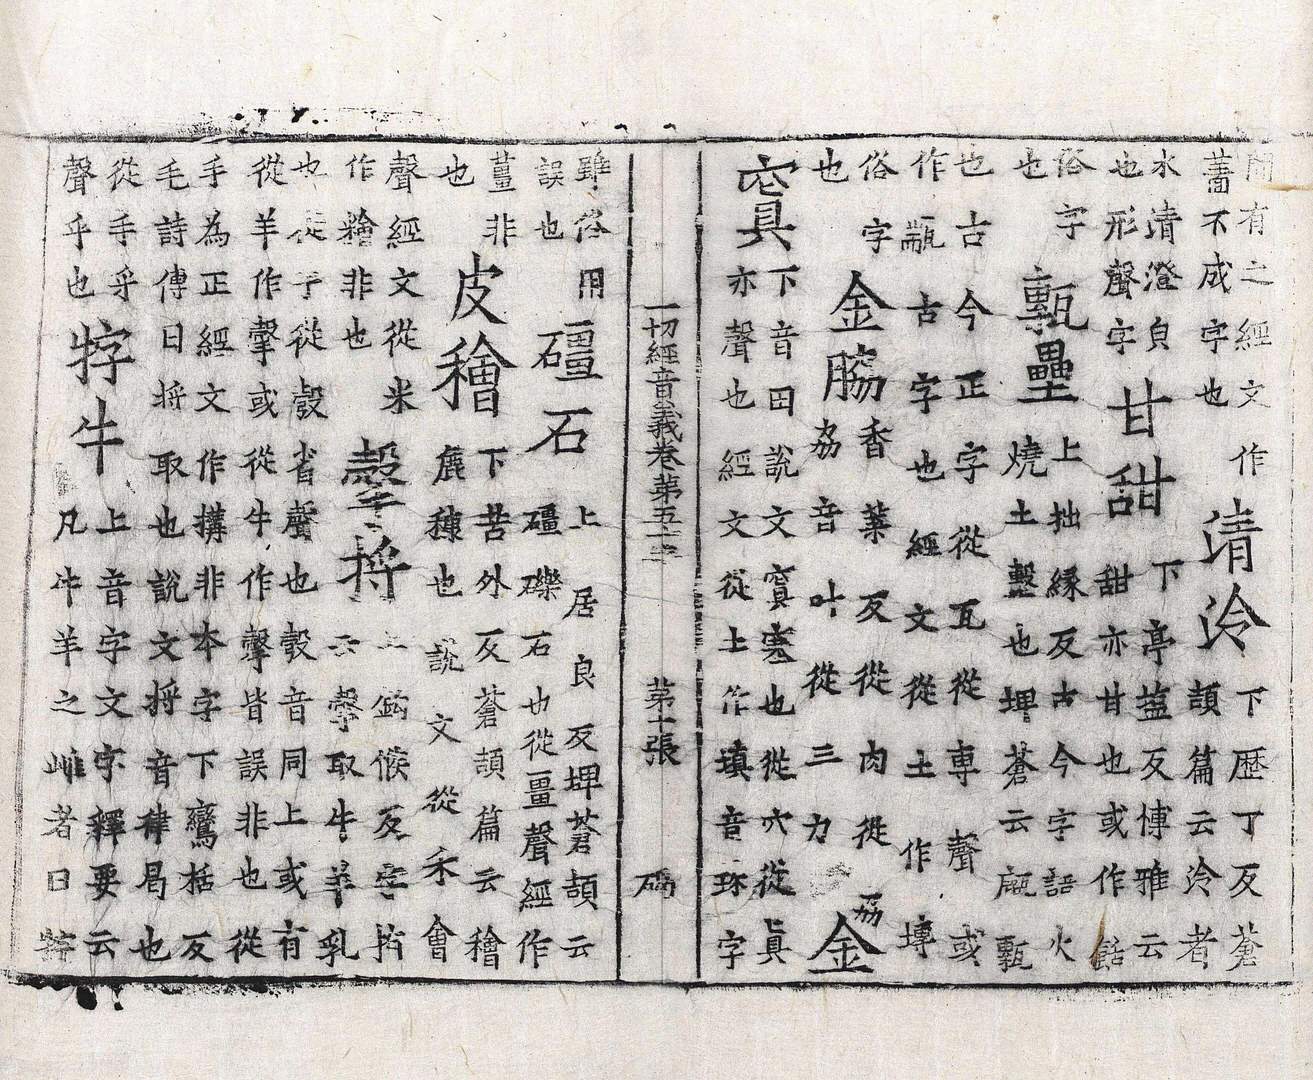 有之經文作
蕾不成字也
清泠
下歴丁反蒼
頡篇云泠者
水清澄皃
也形聲字
甘甜
下亭䀋反博雅云
甜亦甘也或作䭞
俗字
也
甎壘
上拙縁反古今字語火
燒土墼也埤蒼云㼾甎
也古今正字從瓦從專聲或
作古字也經文從土作塼
俗字
也
金脇
香葉反從肉從劦
劦音叶從三力
金
窴
下音田說文窴塞也從穴從眞
亦聲也經文從土作填音珎字
一切經音義卷第五十三 第十張 碣
雖俗用
誤也
礓石
上居良反埤蒼頡云
礓礫石也從畺聲經作
薑非
也
皮𥢶
下苦外反蒼頡篇云𥢶
麁糠也說文從禾會
聲經文從米
作糩非也
㲉捋
上鉤候反字指
云㲉取牛羊乳
也從子從㱿省聲也㱿音同上或有
從羊作㨌或從牛作㨌皆誤非也從
手為正經文作搆非本字下鸞栝反
毛詩傳曰捋取也說文捋音律曷也
從手寽
聲乎也
牸牛
上音字文字釋要云
凡牛羊之雌者曰牸